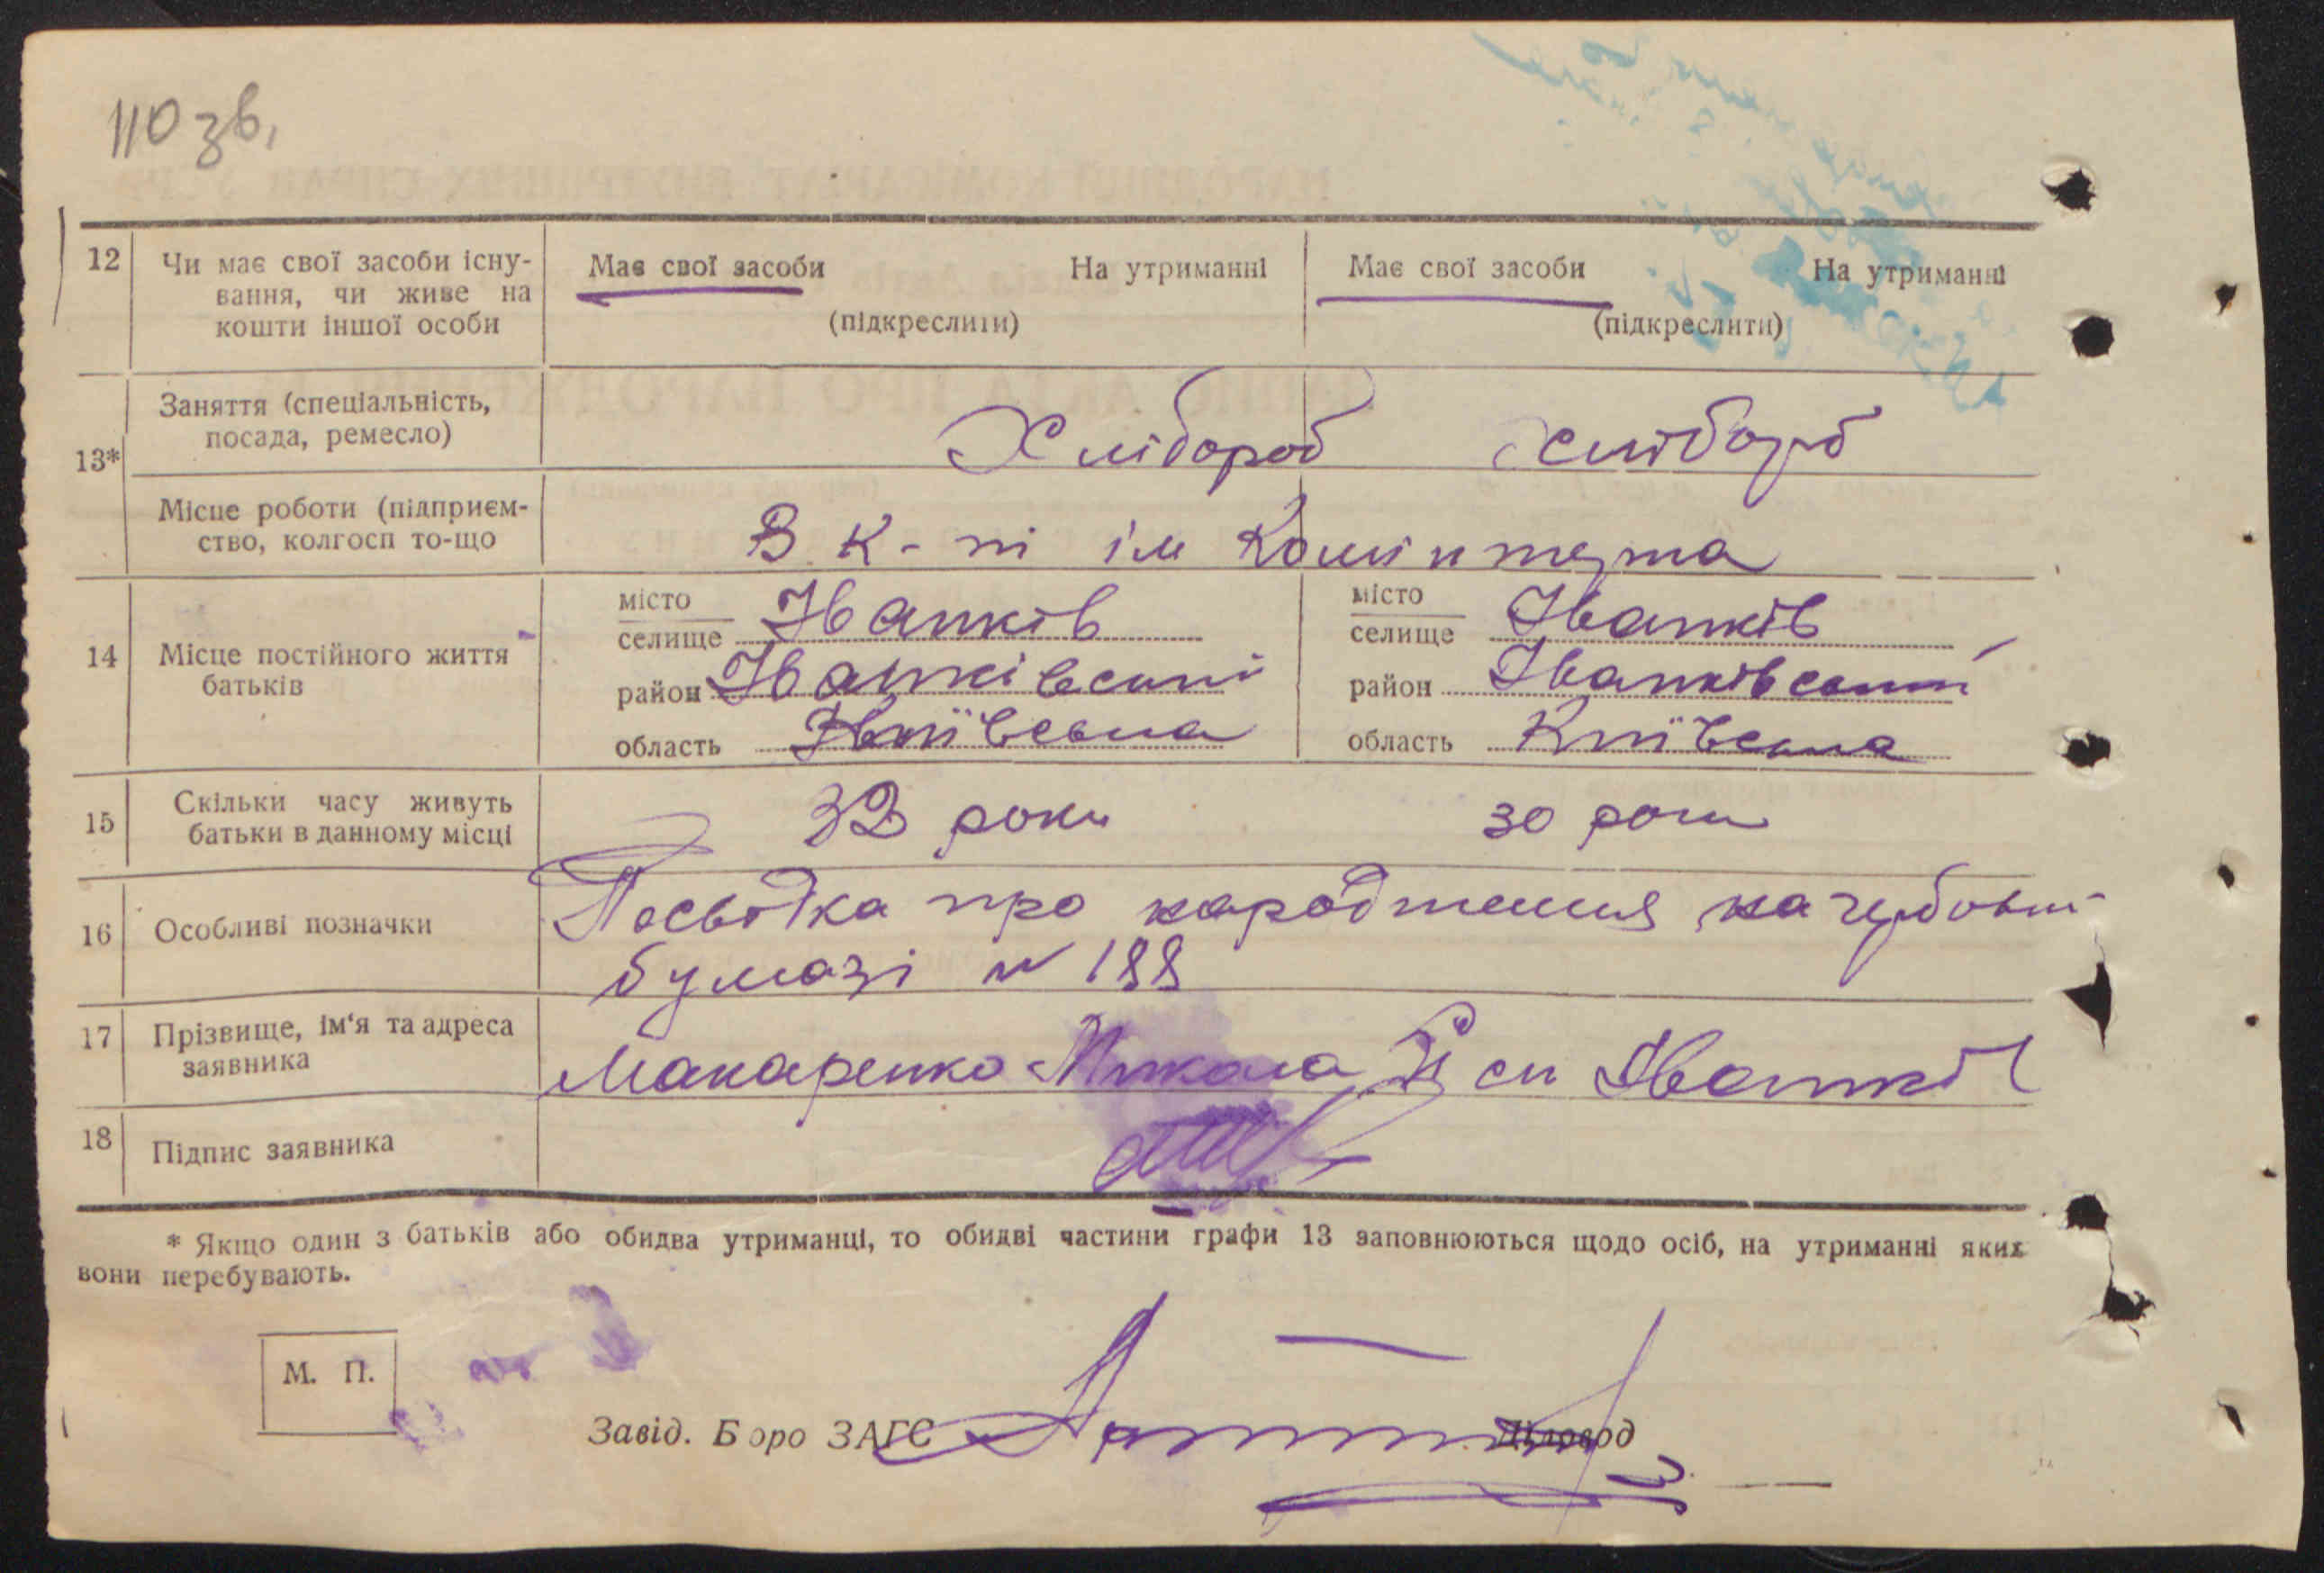 110 зв.
12 Чи має свої засоби існу-
вання, чи живе на
кошти іншої особи
Має свої засоби На утриманні
(підкреслити)
Має свої засоби На утриманні
(підкреслити)
13*
Заняття (спеціальність,
посада, ремесло)
Хлібороб Хлібороб
Місце роботи (підприєм-
ство, колгосп то-що
В к-пі ім Комінтерна
14 Місце постійного життя
батьків
місто
селище Іванків
район Іванківський
область Київська
місто
селище Іванків
район Іванківський
область Київська
15 Скільки часу живуть
батьки в данному місці
32 роки 30 роки
16 Особливі позначки
Посвідка про народження на гербовій
бумазі № 188
17 Прізвище, ім'я та адреса
заявника
Макаренко Микола с Іванків
18 Підпис заявника
* Якщо один з батьків або обидва утриманці, то обидві частини графи 13 заповнюються щодо осіб, на утриманні яких
вони перебувають.
М. П.
Завід. Бюро ЗАГС Діловод